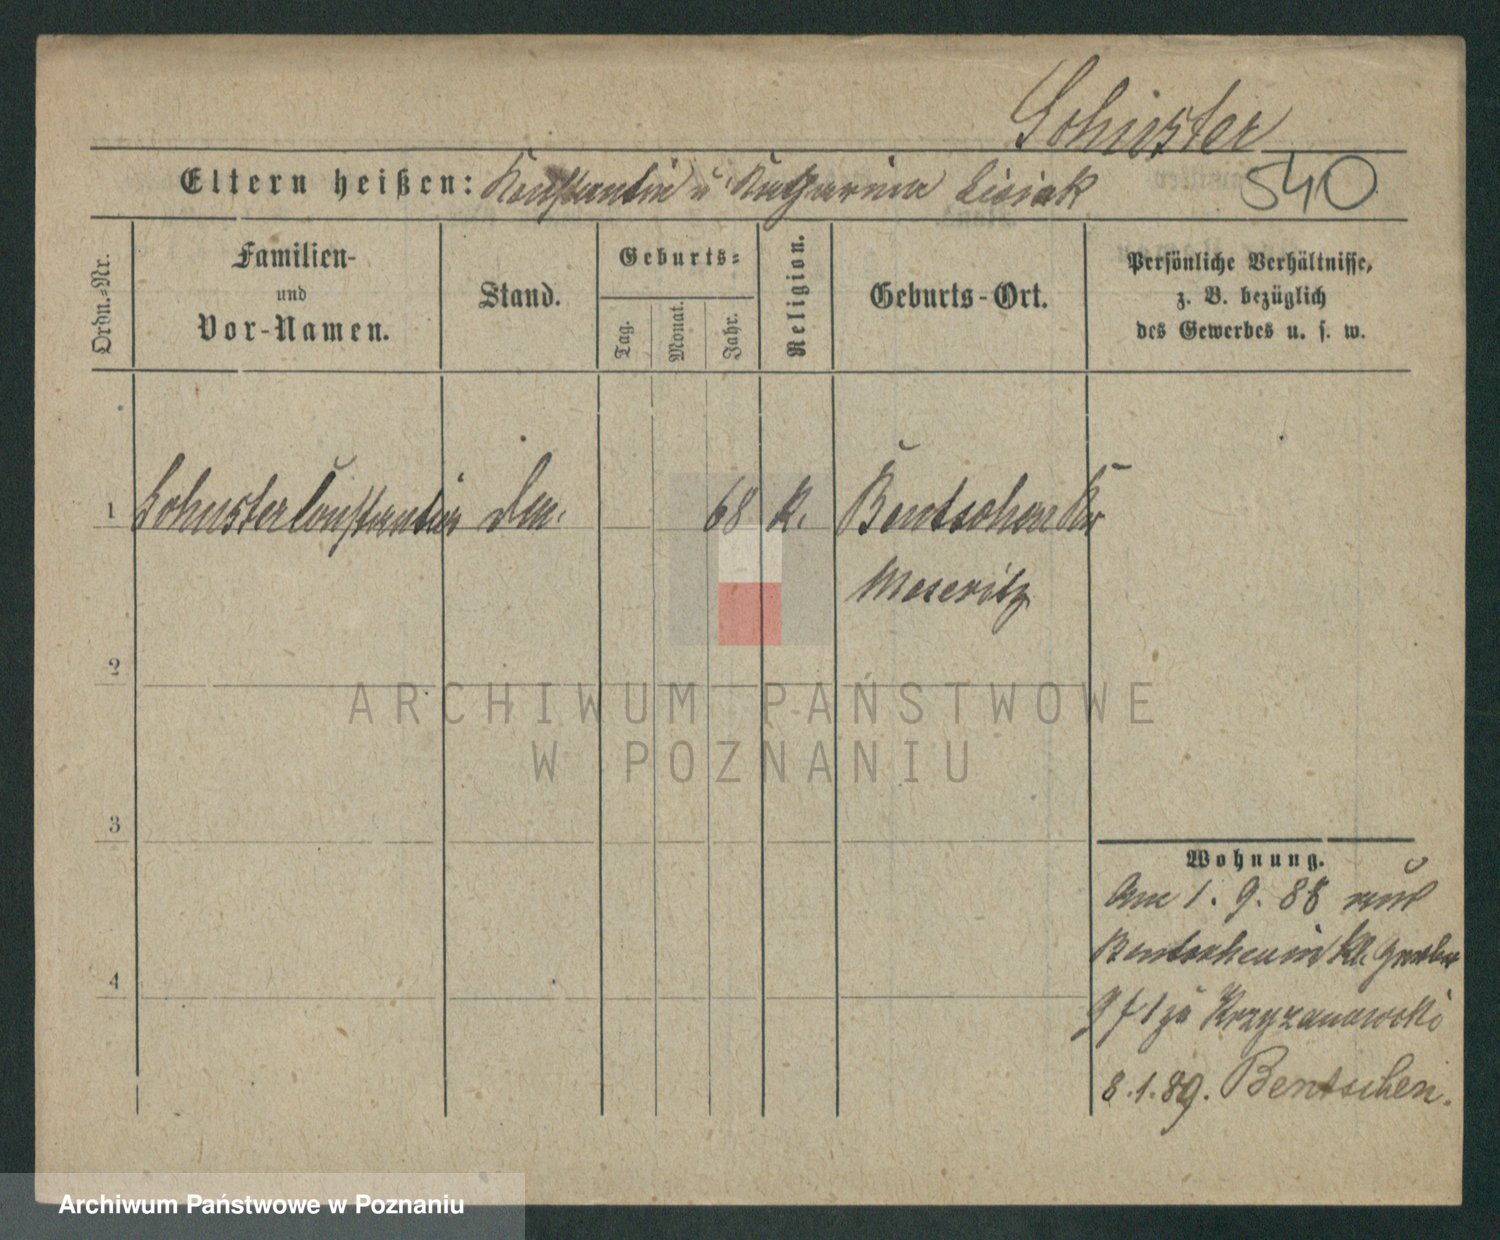 Schuster
Eltern heißen: Konstantin u Katharina Lisiak 540
Ordn.-Nr.
Familien-
und
Vor-Namen.
Stand.
Geburts-
Tag.
Monat.
Jahr.
Religion.
Geburts-Ort.
Persönliche Verhältnisse,
z. B. bezüglich
des Gewerbes u. s. w.
1 Schuster Constantin 68 K. Bentschen Kr
Meseritz
2
3
4
Wohnung.
Am 1. 9. 88 aus
Bentschen in kl. Gerber
9 f 1 zu Krzyzanowski
8.1.89. Bentschen.
ARCHIWUM PAŃSTWOWE
W POZNANIU
Archiwum Państwowe w Poznaniu